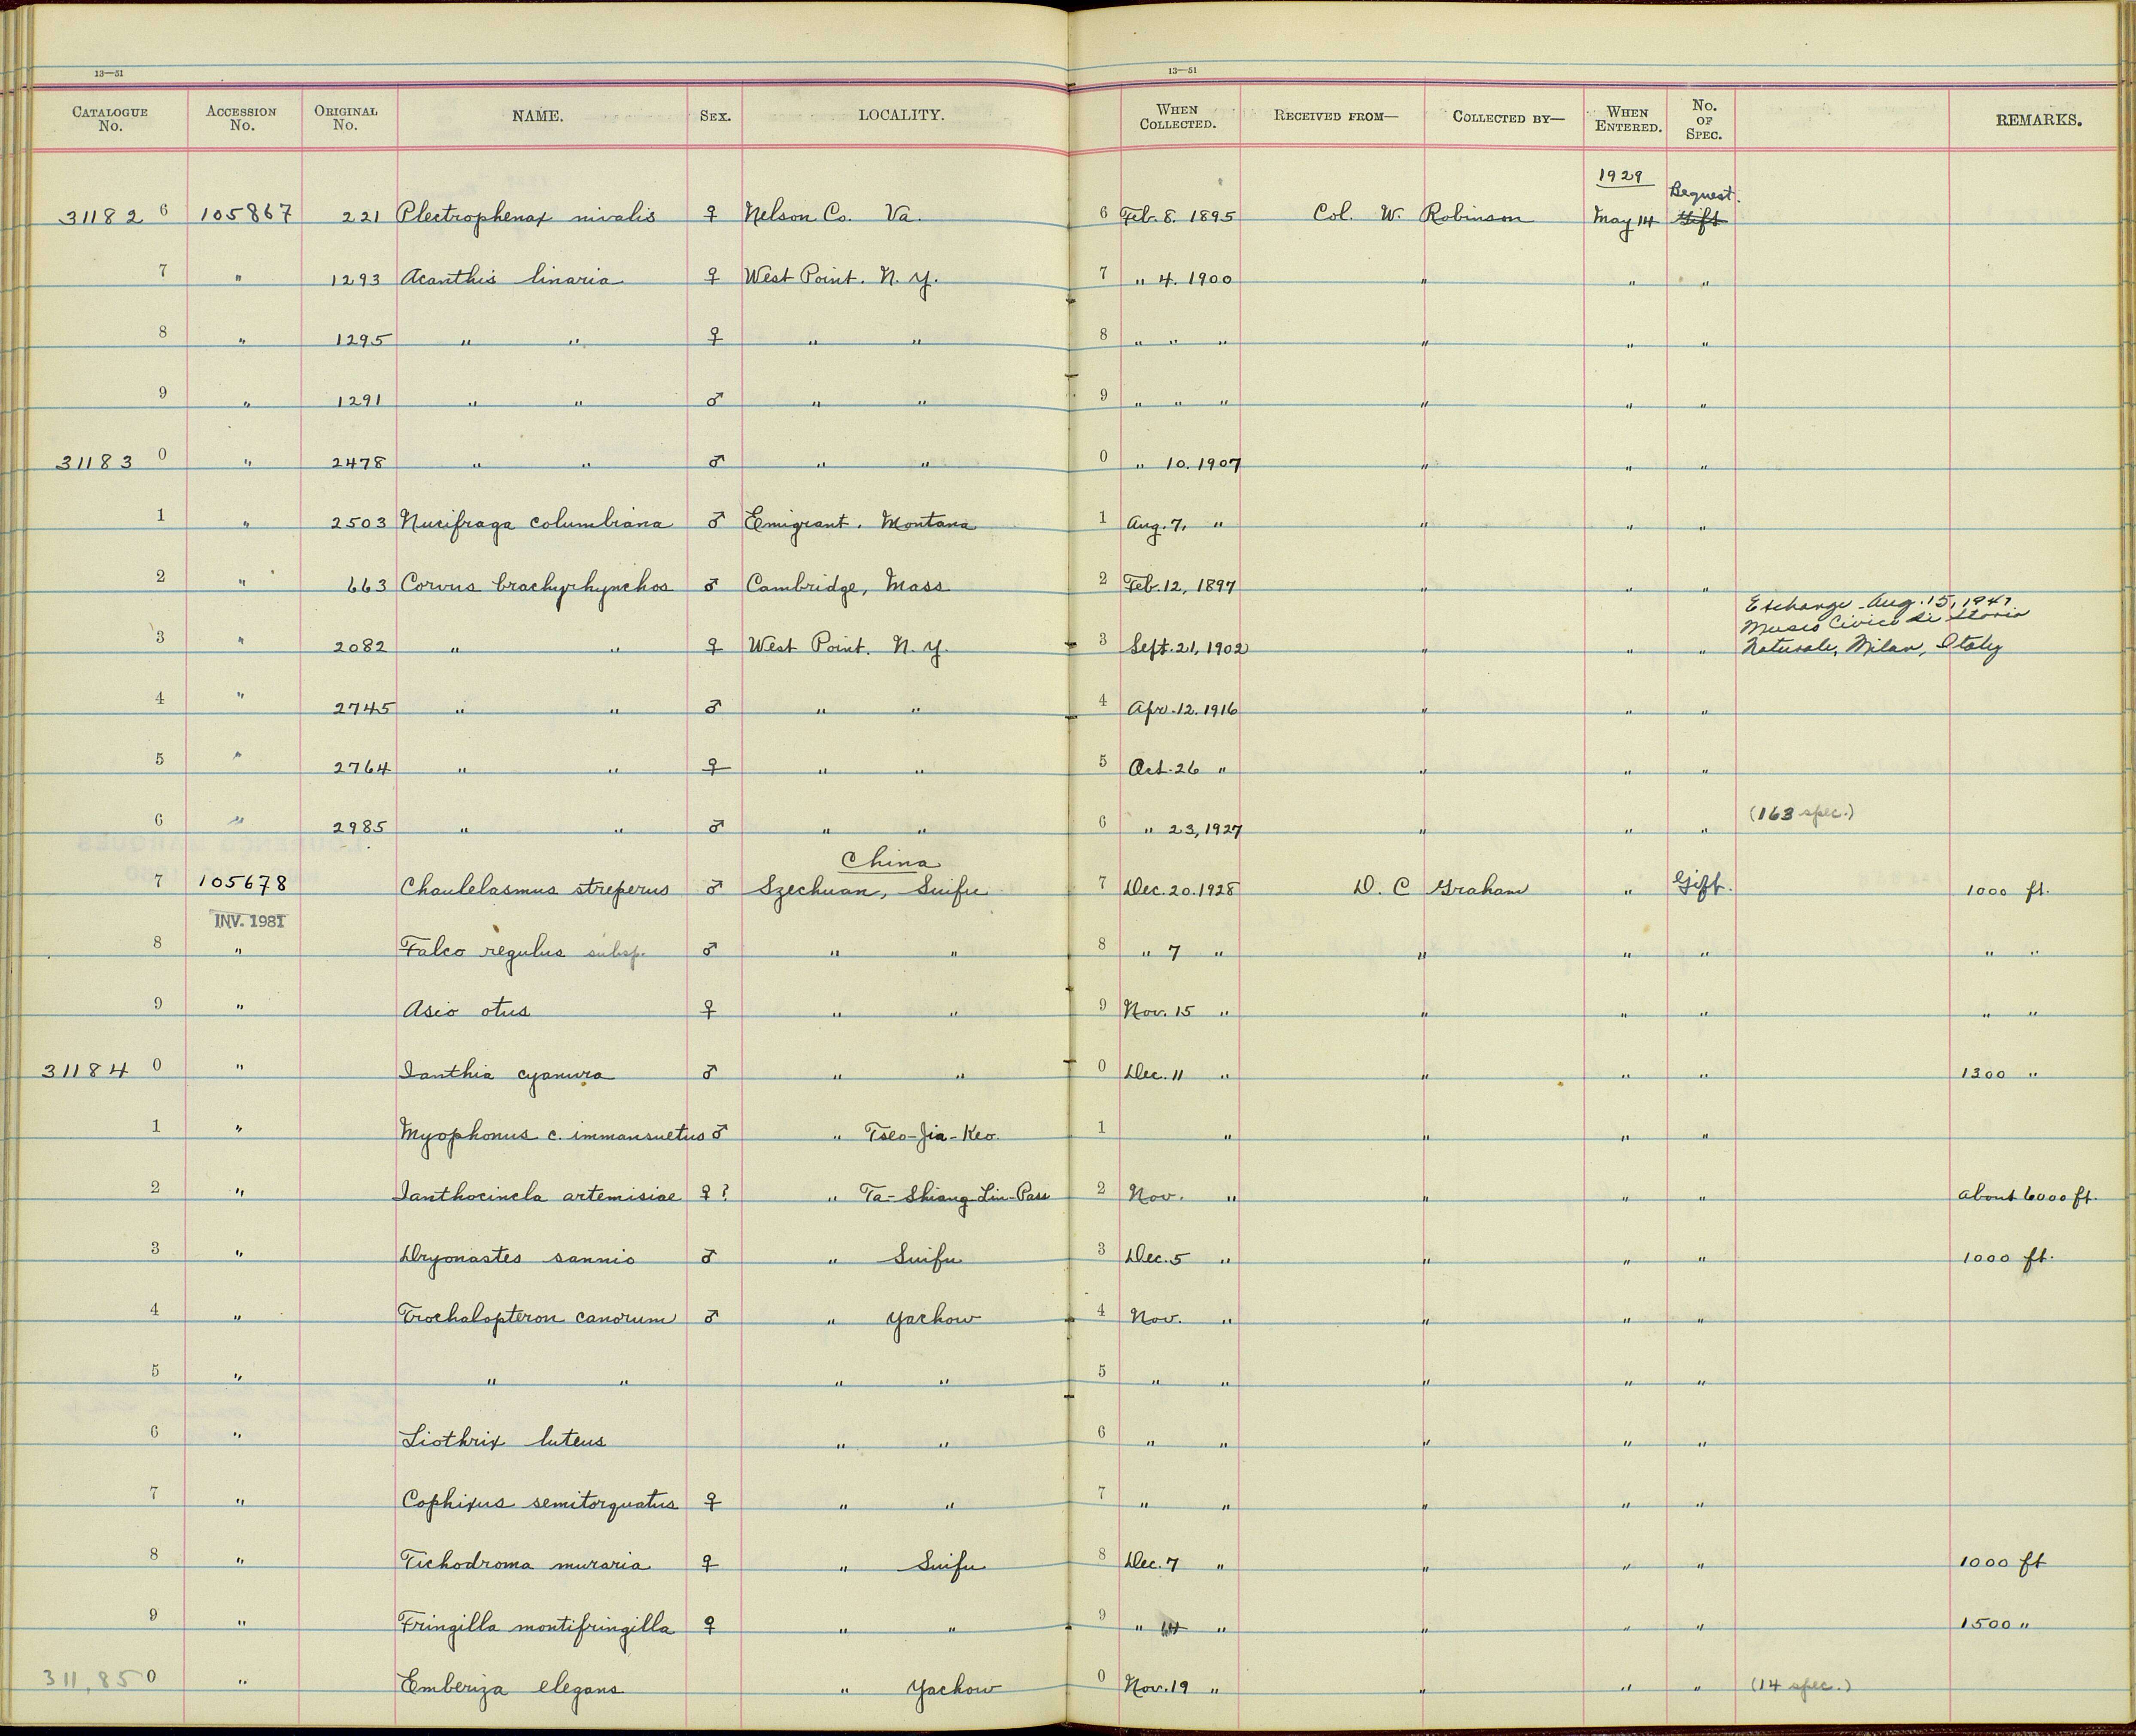 13—51 13—51
CATALOGUE No. ACCESSION No. ORIGINAL No. NAME. SEX. LOCALITY. WHEN COLLECTED. RECEIVED FROM— COLLECTED BY— WHEN ENTERED. No. OF SPEC. REMARKS.
1929 Bequest.
31182 6 105867 221 Plectrophenax nivalis ♀ Nelson Co. Va. 6 Feb. 8. 1895 Col. W. Robinson May 14 Gift
7 " 1293 Acanthis linaria ♀ West Point. N. Y. 7 " 4. 1900 " " "
8 " 1295 " " ♀ " " 8 " " " " " "
9 " 1291 " " ♂ " " 9 " " " " " "
31183 0 " 2478 " " ♂ " " 0 " 10. 1907 " " "
1 " 2503 Nucifraga columbiana ♂ Emigrant. Montana 1 Aug. 7. " " " "
2 " 663 Corvus brachyrhynchos ♂ Cambridge, Mass 2 Feb. 12, 1897 " " "
Exchange - Aug. 15, 1947
Museo Civico di Storia
3 " 2082 " " ♀ West Point. N. Y. 3 Sept. 21, 1902 " " " Naturale, Milan, Italy
4 " 2745 " " ♂ " " 4 Apr. 12. 1916 " " "
5 " 2764 " " ♀ " " 5 Oct. 26 " " " "
6 " 2985 " " ♂ " " 6 " 23, 1927 " " " (163 spec.)
China
7 105678 Chaulelasmus streperus ♂ Szechuan, Suifu 7 Dec. 20. 1928 D. C Graham " Gift. 1000 ft.
INV. 1981
8 " Falco regulus subsp. ♂ " " 8 " 7 " " " " " "
9 " Asio otus ♀ " " 9 Nov. 15 " " " " " "
31184 0 " Ianthia cyanura ♂ " " 0 Dec. 11 " " " " 1300 "
1 " Myophonus c. immansuetus ♂ " Tseo-Jia-Keo. 1 " " " "
2 " Ianthocincla artemisiae ♀? " Ta-Shiang-Lin-Pass 2 Nov. " " " " About 6000 ft.
3 " Dryonastes sannio ♂ " Suifu 3 Dec. 5 " " " " 1000 ft.
4 " Trochalopteron canorum ♂ " Yachow 4 Nov. " " " "
5 " " " " " 5 " " " " "
6 " Liothrix luteus " " 6 " " " " "
7 " Cophixus semitorquatus ♀ " " 7 " " " " "
8 " Tichodroma muraria ♀ " Suifu 8 Dec. 7 " " " " 1000 ft
9 " Fringilla montifringilla ♀ " " 9 " 14 " " " " 1500 "
311,85 0 " Emberiza elegans " Yachow 0 Nov. 19 " " " " (14 spec.)